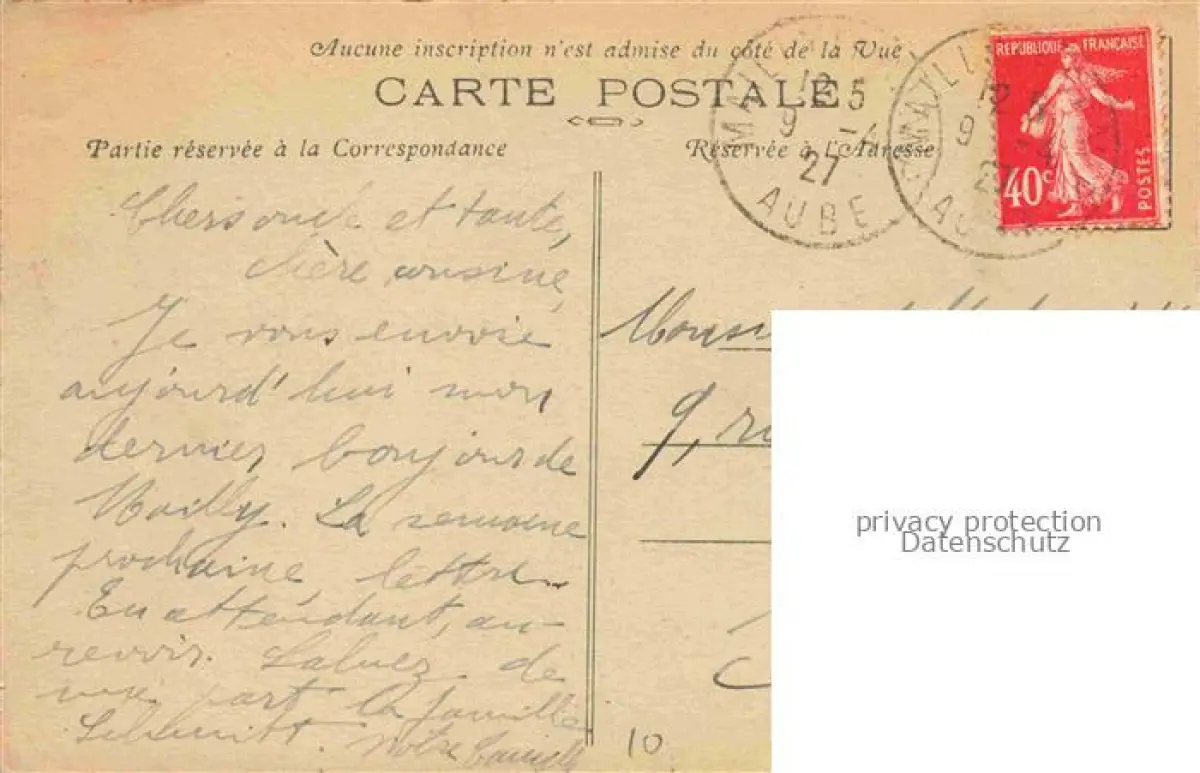 Aucune inscription n'est admise du côté de la Vue
CARTE POSTALE
Partie réservée à la Correspondance
Réservée à l'Adresse
MAILLY
12 5
9 -4
27
AUBE
MAILLY
12
9
27
RÉPUBLIQUE FRANÇAISE
40c
POSTES
Chers oncle et tante,
chère cousine,
Je vous envoie
aujourd'hui mon
dernier bonjour de
Mailly. La semaine
prochaine, lettre.
En attendant, au
revoir. Saluez de
ma part la famille
Schmitt. Votre Camille
Monsi
9, ru
privacy protection
Datenschutz
10